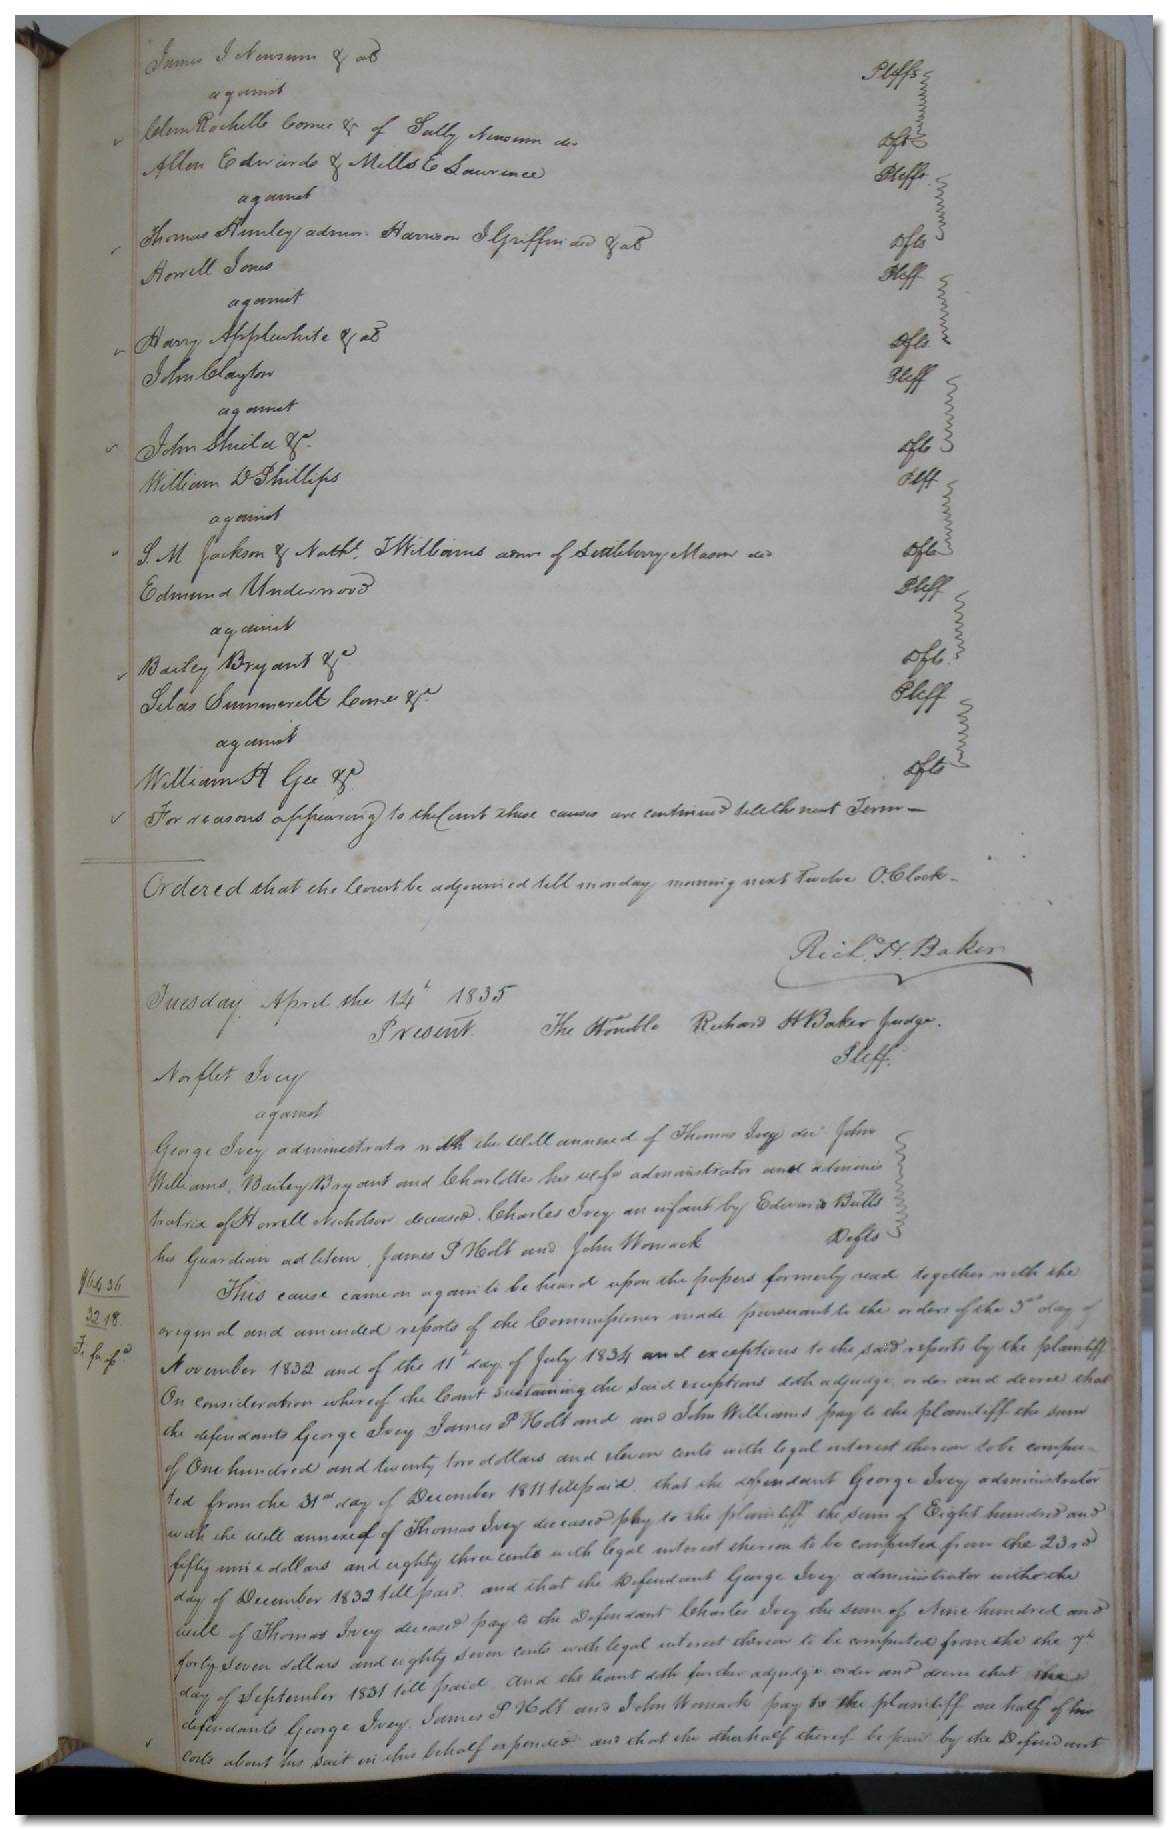 James J Newsum & als Pltffs
against
Clem Rochelle Comr &c of Sally Newsum dec Dfts
Allen Edwards & Mills E Lawrence Pltffs
against
Thomas Hunley admor. Harrison J Griffin dec & als Dfts
Howell Jones Pltff
against
Harry Applewhite & als Dfts
John Clayton Pltff
against
John Shield &c. Dfts
William D Phillips Pltff
against
S. M Jackson & Nathl. T Williams admr of Littleberry Mason dec Dfts
Edmund Underwood Pltff
against
Bailey Bryant &c Dfts
Silas Summerell Comr &c Pltff
against
William H Gee &c Dfts
For reasons appearing to the Court these causes are continued till the next Term—
Ordered that the Court be adjourned till monday morning next Twelve O.Clock-
Richd. H. Baker
Tuesday April the 14th 1835
Present The Honble Richard H Baker Judge.
Pltff.
Norflet Ivey
against
George Ivey administrator with the Will annexed of Thomas Ivey dec John
Williams, Bailey Bryant and Charlotte his wife administrator and adminis
tratrix of Howell Nicholson deceased, Charles Ivey an infant by Edward Butts
his Guardian ad litem, James P Holt and John Womack Defts
This cause came on again to be heard upon the papers formerly read together with the
original and amended reports of the Commissioner made pursuant to the orders of the 3rd day of
32.18
Fi fa
November 1832 and of the 11th day of July 1834 and exceptions to the said reports by the plaintiff
On consideration whereof the Court sustaining the said exceptions doth adjudge, order and decree that
the defendants George Ivey James P Holt and and John Williams pay to the plaintiff the sum
of One hundred and twenty two dollars and eleven cents with legal interest thereon to be compu-
ted from the 31st day of December 1811 till paid. that the defendant George Ivey administrator
with the will annexed of Thomas Ivey deceased pay to the plaintiff the sum of Eight hundred and
fifty nine dollars and eighty three cents with legal interest thereon to be computed from the 23rd
day of December 1832 till paid. and that the Defendant George Ivey administrator with the
will of Thomas Ivey deceased pay to the Defendant Charles Ivey the sum of Nine hundred and
forty seven dollars and eighty seven cents with legal interest thereon to be computed from the the 7th
day of September 1831 till paid. And the Court doth further adjudge order and decree that the
defendants George Ivey, James P Holt and John Womack pay to the plaintiff one half of his
costs about his suit in this behalf expended and that the other half thereof be paid by the Defendant